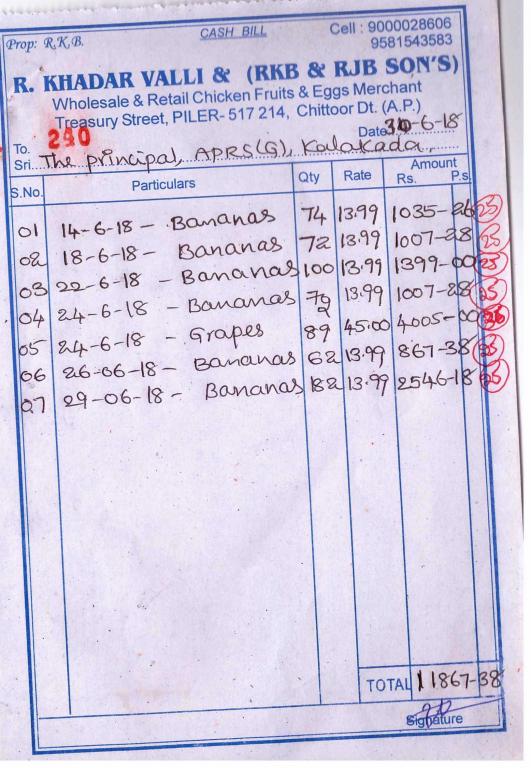 Prop: R.K.B. CASH BILL Cell : 9000028606
9581543583
R. KHADAR VALLI & (RKB & RJB SON'S)
Wholesale & Retail Chicken Fruits & Eggs Merchant
Treasury Street, PILER- 517 214, Chittoor Dt. (A.P.)
To. 290 Date 30-6-18
Sri. The principal, APRS(G), Kalakada,
S.No. Particulars Qty Rate Amount Rs. P.s
01 14-6-18 - Bananas 74 13.99 1035-26 25
02 18-6-18 - Bananas 72 13.99 1007-28 25
03 22-6-18 - Bananas 100 13.99 1399-00 25
04 24-6-18 - Bananas 72 13.99 1007-28 25
05 24-6-18 - Grapes 89 45.00 4005-00 26
06 26-06-18 - Bananas 62 13.99 867-38 25
07 29-06-18 - Bananas 182 13.99 2546-18 25
TOTAL 11867-38
Signature